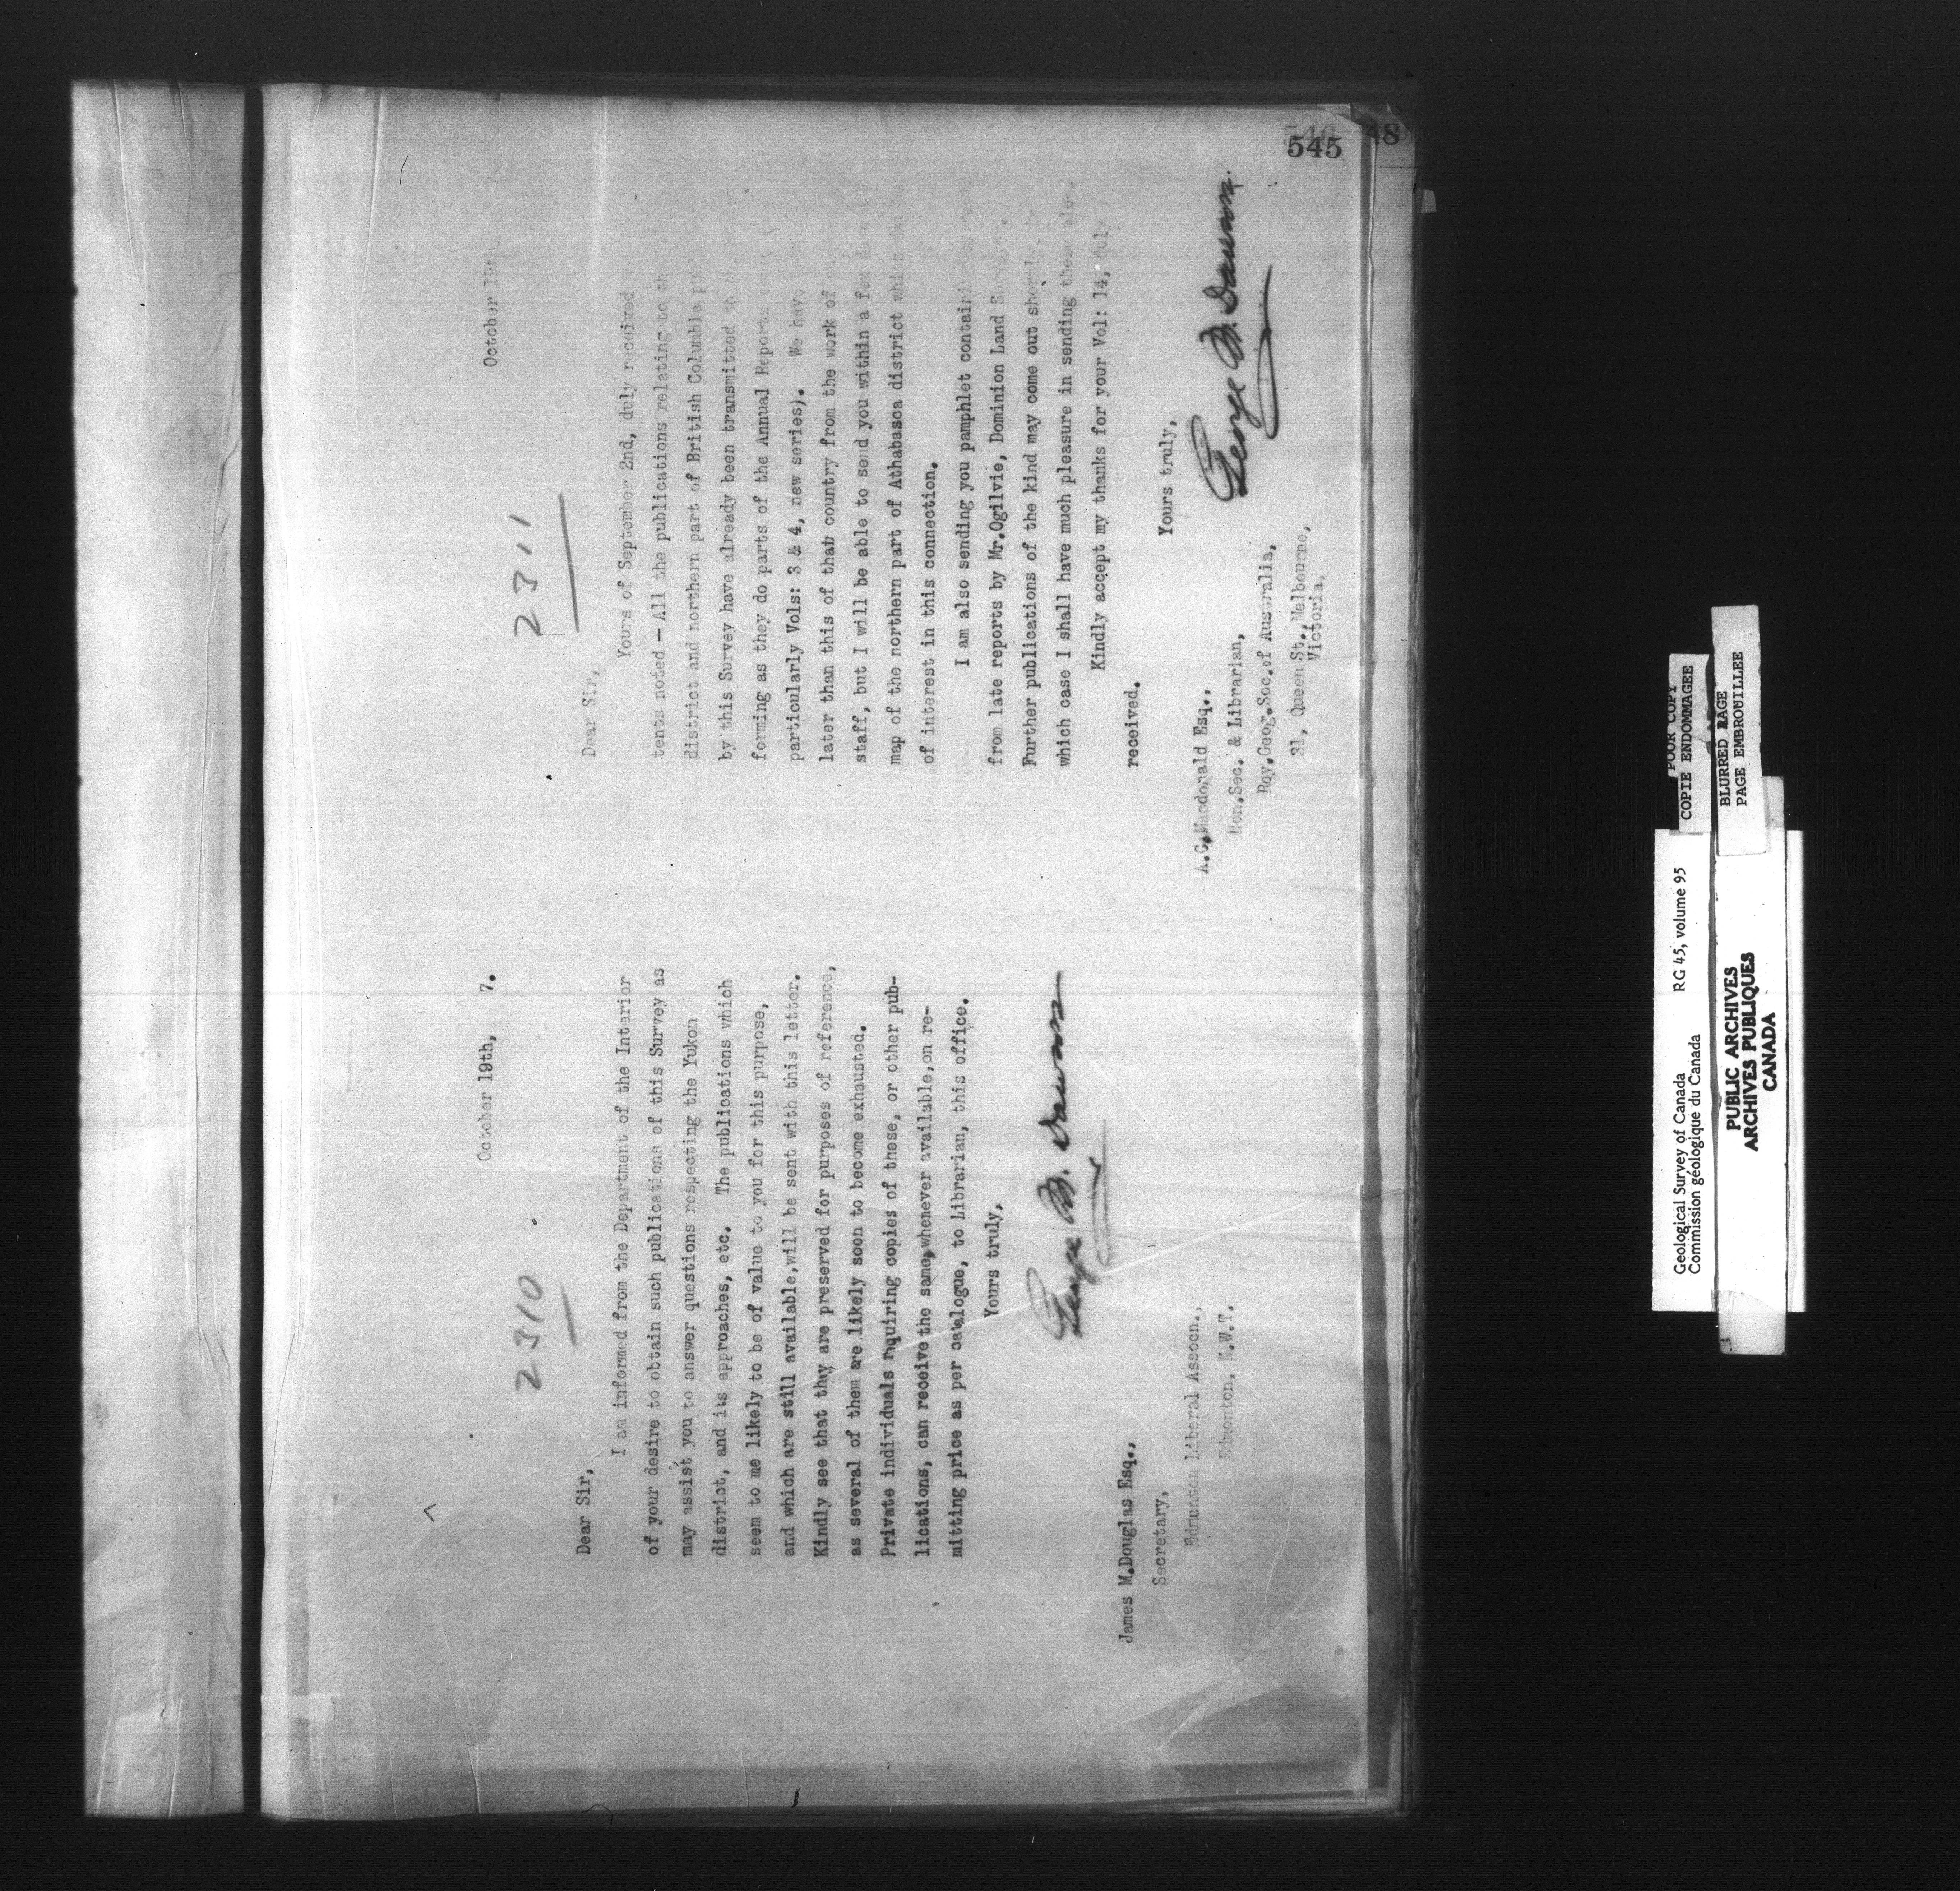 545
48
October 19th, 7.
2310
Dear Sir,
I am informed from the Department of the Interior
of your desire to obtain such publications of this Survey as
may assist you to answer questions respecting the Yukon
district, and its approaches, etc. The publications which
seem to me likely to be of value to you for this purpose,
and which are still available, will be sent with this letter.
Kindly see that they are preserved for purposes of reference,
as several of them are likely soon to become exhausted.
Private individuals requiring copies of these, or other pub-
lications, can receive the same, whenever available, on re-
mitting price as per catalogue, to Librarian, this office.
Yours truly,
George M. Dawson
James M. Douglas Esq.,
Secretary,
Edmonton Liberal Assocn.,
Edmonton, N.W.T.
October 19th
2311
Dear Sir,
Yours of September 2nd, duly received
tents noted - All the publications relating to th
district and northern part of British Columbia
by this Survey have already been transmitted
forming as they do parts of the Annual Reports
particularly Vols: 3 & 4, new series). We have
later than this of that country from the work of
staff, but I will be able to send you within a few
map of the northern part of Athabasca district which
of interest in this connection.
I am also sending you pamphlet contain
from late reports by Mr. Ogilvie, Dominion Land
Further publications of the kind may come out shortly, in
which case I shall have much pleasure in sending these also.
Kindly accept my thanks for your Vol: 14, duly
received.
Yours truly,
George M. Dawson
A.C. Macdonald Esq.,
Hon. Sec. & Librarian,
Roy. Geog. Soc. of Australia,
31, Queen St., Melbourne,
Victoria.
Geological Survey of Canada RG 45, volume 95
Commission géologique du Canada
PUBLIC ARCHIVES
ARCHIVES PUBLIQUES
CANADA
POOR COPY
COPIE ENDOMMAGEE
BLURRED PAGE
PAGE EMBROUILLEE